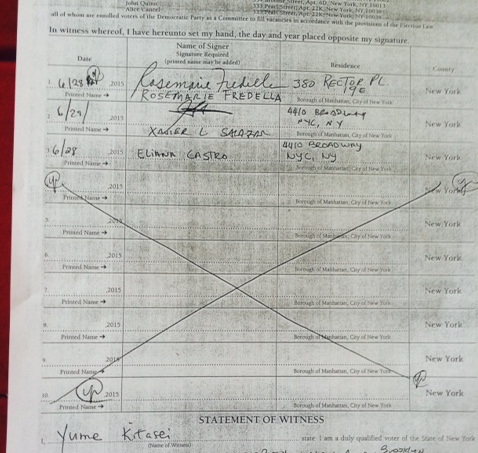 John Quinn
Alice Cancel
333 Pearl Street, Apt. 22K, New York, NY
all of whom are enrolled voters of the Democratic Party as a Committee to fill vacancies in accordance with the provisions of the Election Law.
In witness whereof, I have hereunto set my hand, the day and year placed opposite my signature.
Date Name of Signer Residence County
Signature Required
(printed name may be added)
1. 6/28 2015 Rosemarie Fredella 380 RECTOR PL New York
9E
Printed Name → ROSEMARIE FREDELLA Borough of Manhattan, City of New York
2. 6/29/ 2015 4410 BROADWAY New York
NYC, NY
Printed Name → XAVIER L SALAZAR
3. 6/28 ELIANA CASTRO 4410 BROADWAY New York
NYC, NY
Printed Name →
2015 New York
Printed Name → Borough of Manhattan, City of New York
5. 2015 New York
Printed Name → Borough of Manhattan, City of New York
6. 2015 New York
Printed Name → Borough of Manhattan, City of New York
7. 2015 New York
Printed Name → Borough of Manhattan, City of New York
8. 2015 New York
Printed Name → Borough of Manhattan, City of New York
9. 2015 New York
Printed Name → Borough of Manhattan, City of New York
10. 2015 New York
Printed Name → Borough of Manhattan, City of New York
STATEMENT OF WITNESS
I, Yume Kitasei state: I am a duly qualified voter of the State of New York
(Name of Witness)
Brooklyn